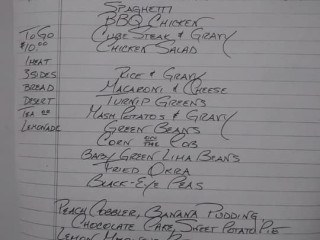 Spaghetti
BBQ Chicken
Cube Steak & Gravy
Chicken Salad
To Go
$10.00
1 Meat
3 Sides
Bread
Desert
Tea or
Lemonade
Rice & Gravy
Macaroni & Cheese
Turnip Greens
Mash Potatos & Gravy
Green Beans
Corn on the Cob
Baby Green Lima Beans
Fried Okra
Black-Eye Peas
Peach Cobbler, Banana Pudding
Chocolate Cake, Sweet Potato Pie
Lemon